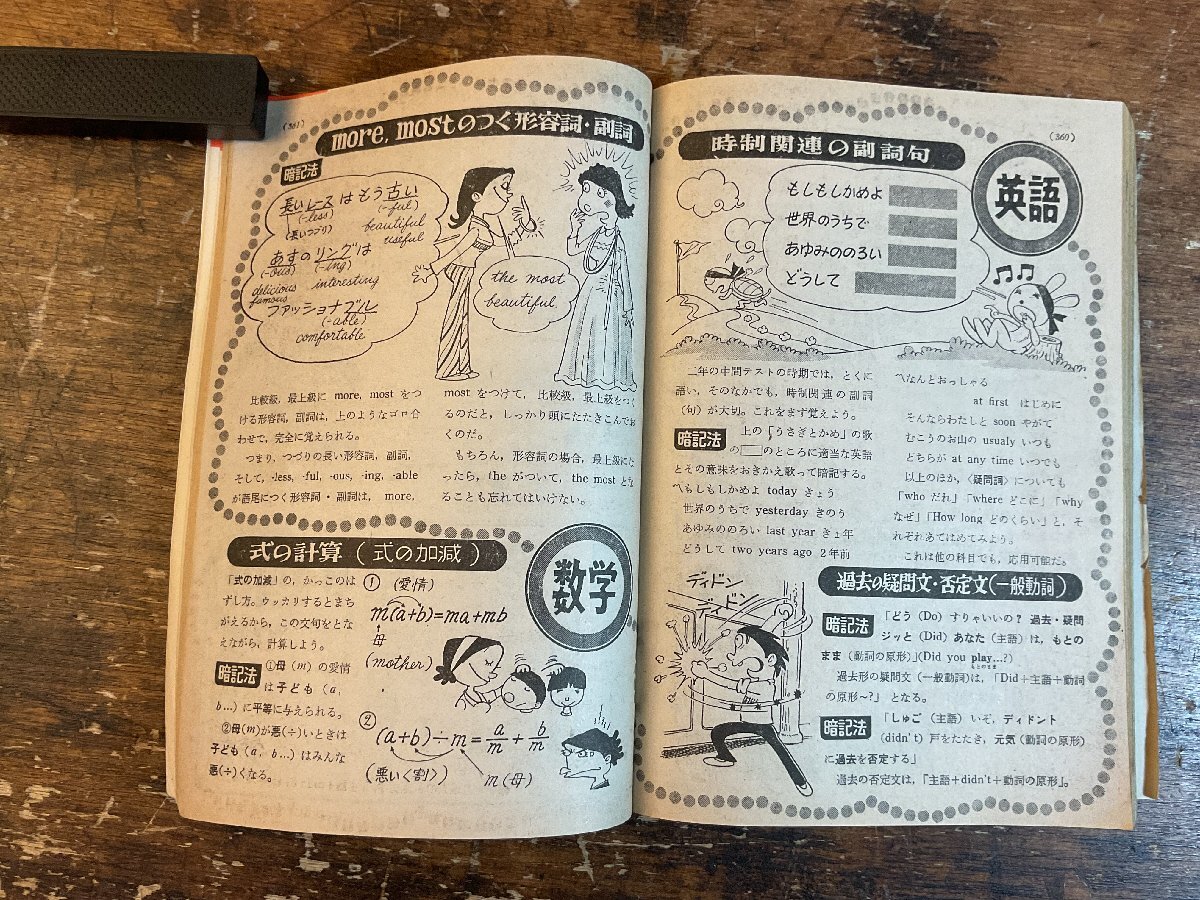 (360)
時制関連の副詞句
英語
もしもしかめよ
世界のうちで
あゆみののろい
どうして
二年の中間テストの時期では，とくに
語い，そのなかでも，時制関連の副詞
(句）が大切。これをまず覚えよう。
暗記法 上の「うさぎとかめ」の歌
の□のところに適当な英語
とその意味をおきかえ歌って暗記する。
もしもしかめよ today きょう
世界のうちで yesterday きのう
あゆみののろい last year きょ年
どうして two years ago 2年前
なんとおっしゃる
at first はじめに
そんならわたしと soon やがて
むこうのお山の usualy いつも
どちらが at any time いつでも
以上のほか，〈疑問詞〉についても
「who だれ」「where どこに」「why
なぜ」「How long どのくらい」と，そ
れぞれあてはめてみよう。
これは他の科目でも，応用可能だ。
ディドン
ディドン
過去の疑問文・否定文(一般動詞)
暗記法 「どう（Do）すりゃいいの？ 過去・疑問
ジッと（Did）あなた（主語）は，もとの
まま（動詞の原形）」(Did you play…?)
過去形の疑問文（一般動詞)は，「Did＋主語＋動詞
の原形～?」となる。
暗記法 「しゅご（主語）いぞ，ディドント
(didn't) 戸をたたき，元気（動詞の原形）
に過去を否定する」
過去の否定文は，「主語＋didn't＋動詞の原形」。
(361)
more, mostのつく形容詞・副詞
暗記法
長いレースはもう古い
(-less) (-ful)
(長いつづり) beautiful
useful
あすのリングは
(-ous) (-ing)
delicious interesting
famous
ファッショナブル
(-able)
comfortable
the most
beautiful
比較級，最上級に more, most をつ
ける形容詞，副詞は，上のようなゴロ合
わせで，完全に覚えられる。
つまり，つづりの長い形容詞，副詞，
そして，-less, -ful, -ous, -ing, -able
が語尾につく形容詞・副詞は， more,
most をつけて，比較級，最上級をつく
るのだと，しっかり頭にたたきこんでお
くのだ。
もちろん，形容詞の場合，最上級にな
ったら，the がついて，the most とな
ることも忘れてはいけない。
式の計算（式の加減）
数学
「式の加減」の，かっこのは
ずし方。ウッカリするとまち
がえるから，この文句をとな
えながら，計算しよう。
暗記法 ①母（m）の愛情
は子ども（a,
b…）に平等に与えられる。
②母(m)が悪(÷)いときは
子ども（a, b…）はみんな
悪(÷)くなる。
① (愛情)
m(a+b)=ma+mb
母
(mother)
② (a+b)÷m=a/m+b/m
(悪いく割) m(母)